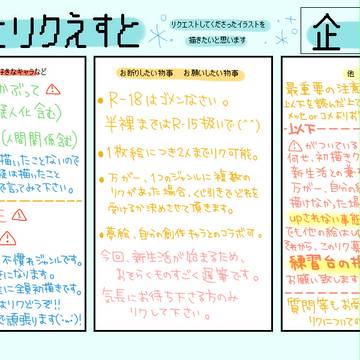 とりクえすと
リクエストしてくださったイラストを
描きたいと思います
企
好きなキャラなど
かぶって
擬人化含む)
(人間関係含む)
描いたことないので
は描いたこと
で言ってみて下さい。
不慣れジャンルです。
になります。
に全員初描きです。
はリクどうぞ!!
で頑張ります(;ω;)
お断りしたい物事 お願いしたい物事
・R-18はゴメンなさい。
半裸まではR-15扱いで(^^)
・1枚絵につき2人までリク可能。
・万が一、1つのジャンルに複数の
リクがあった場合、くじ引きでどれを
受けるか決めさせて頂きます。
・夢絵、自分の創作キャラとのコラボ可。
今回、新生活が始まるため、
おそらくものすごく遅筆です。
気長にお待ち下さる方のみ
リクして下さい。
他
最重要の注意
以下を読んだ上で
以下
がついている
何せ、初描きク
新生活との兼
万が一、自分の
描けなかった場
upされない事態
でも他の絵はup
それから、このリク募
練習台の指
お願い致します
質問等もお受
リクについて